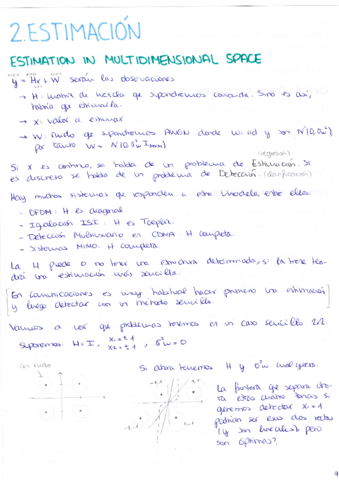 2. ESTIMACIÓN
ESTIMATION IN MULTIDIMENSIONAL SPACE
y = Hx + W serán las observaciones
→ H: matriz de mezcla que supondremos conocida. Si no es así,
habría que estimarla.
→ X: valor a estimar
→ W: Ruido que supondremos AWGN donde Wi iid y son N(0,σw²)
por tanto W ~ N(0,σw² I
(regresión)
Si X es continuo, se habla de un problema de Estimación. Si
es discreto se habla de un problema de Detección. (clasificación)
Hay muchos sistemas que responden a este modelo, entre ellos:
- OFDM: H es diagonal
- Igualación ISI: H es Toeplitz.
- Detección Multiusuario en CDMA: H completa
- Sistemas MIMO: H completa
La H puede o no tener una estructura determinada, si la tiene ten-
drá una estimación más sencilla.
[En comunicaciones es muy habitual hacer primero una estimación
y luego detectar con un método sencillo.]
Vamos a ver que problemas tenemos en un caso sencillo 2x2.
Suponemos H = I, x₁=±1 x₂=±1, σ²w = 0
Si ahora tenemos H y σ²w cualquiera.
La frontera que separa
estas cuatro zonas si
queremos detectar x₁=1
podrían ser esas dos rectas
(y son lineales) pero
son óptimas?